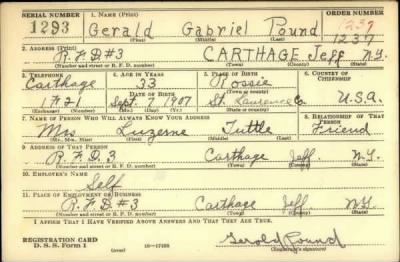 SERIAL NUMBER 1. NAME (Print) ORDER NUMBER
1293 Gerald Gabriel Pound 1237
(First) (Middle) (Last) 1237
2. ADDRESS (Print)
R.F.D #3 CARTHAGE Jeff N.Y.
(Number and street or R. F. D. number) (Town) (County) (State)
3. TELEPHONE 4. AGE IN YEARS 5. PLACE OF BIRTH 6. COUNTRY OF CITIZENSHIP
Carthage 33 Rossie
DATE OF BIRTH (Town or county)
Sept. 7 1907 St. Lawrence Co U.S.A.
(Mo.) (Day) (Yr.) (State or country)
7. NAME OF PERSON WHO WILL ALWAYS KNOW YOUR ADDRESS 8. RELATIONSHIP OF THAT PERSON
Mrs Luzerne Tuttle Friend
(Mr., Mrs., Miss) (First) (Middle) (Last)
9. ADDRESS OF THAT PERSON
R.F.D.3 Carthage Jeff. N.Y.
(Number and street or R. F. D. number) (Town) (County) (State)
10. EMPLOYER'S NAME
Self
11. PLACE OF EMPLOYMENT OR BUSINESS
R.F.D #3 Carthage Jeff. N.Y.
(Number and street or R. F. D. number) (Town) (County) (State)
I AFFIRM THAT I HAVE VERIFIED ABOVE ANSWERS AND THAT THEY ARE TRUE.
REGISTRATION CARD
D. S. S. Form 1 (over) 16—17105 Gerald Pound
(Registrant's signature)